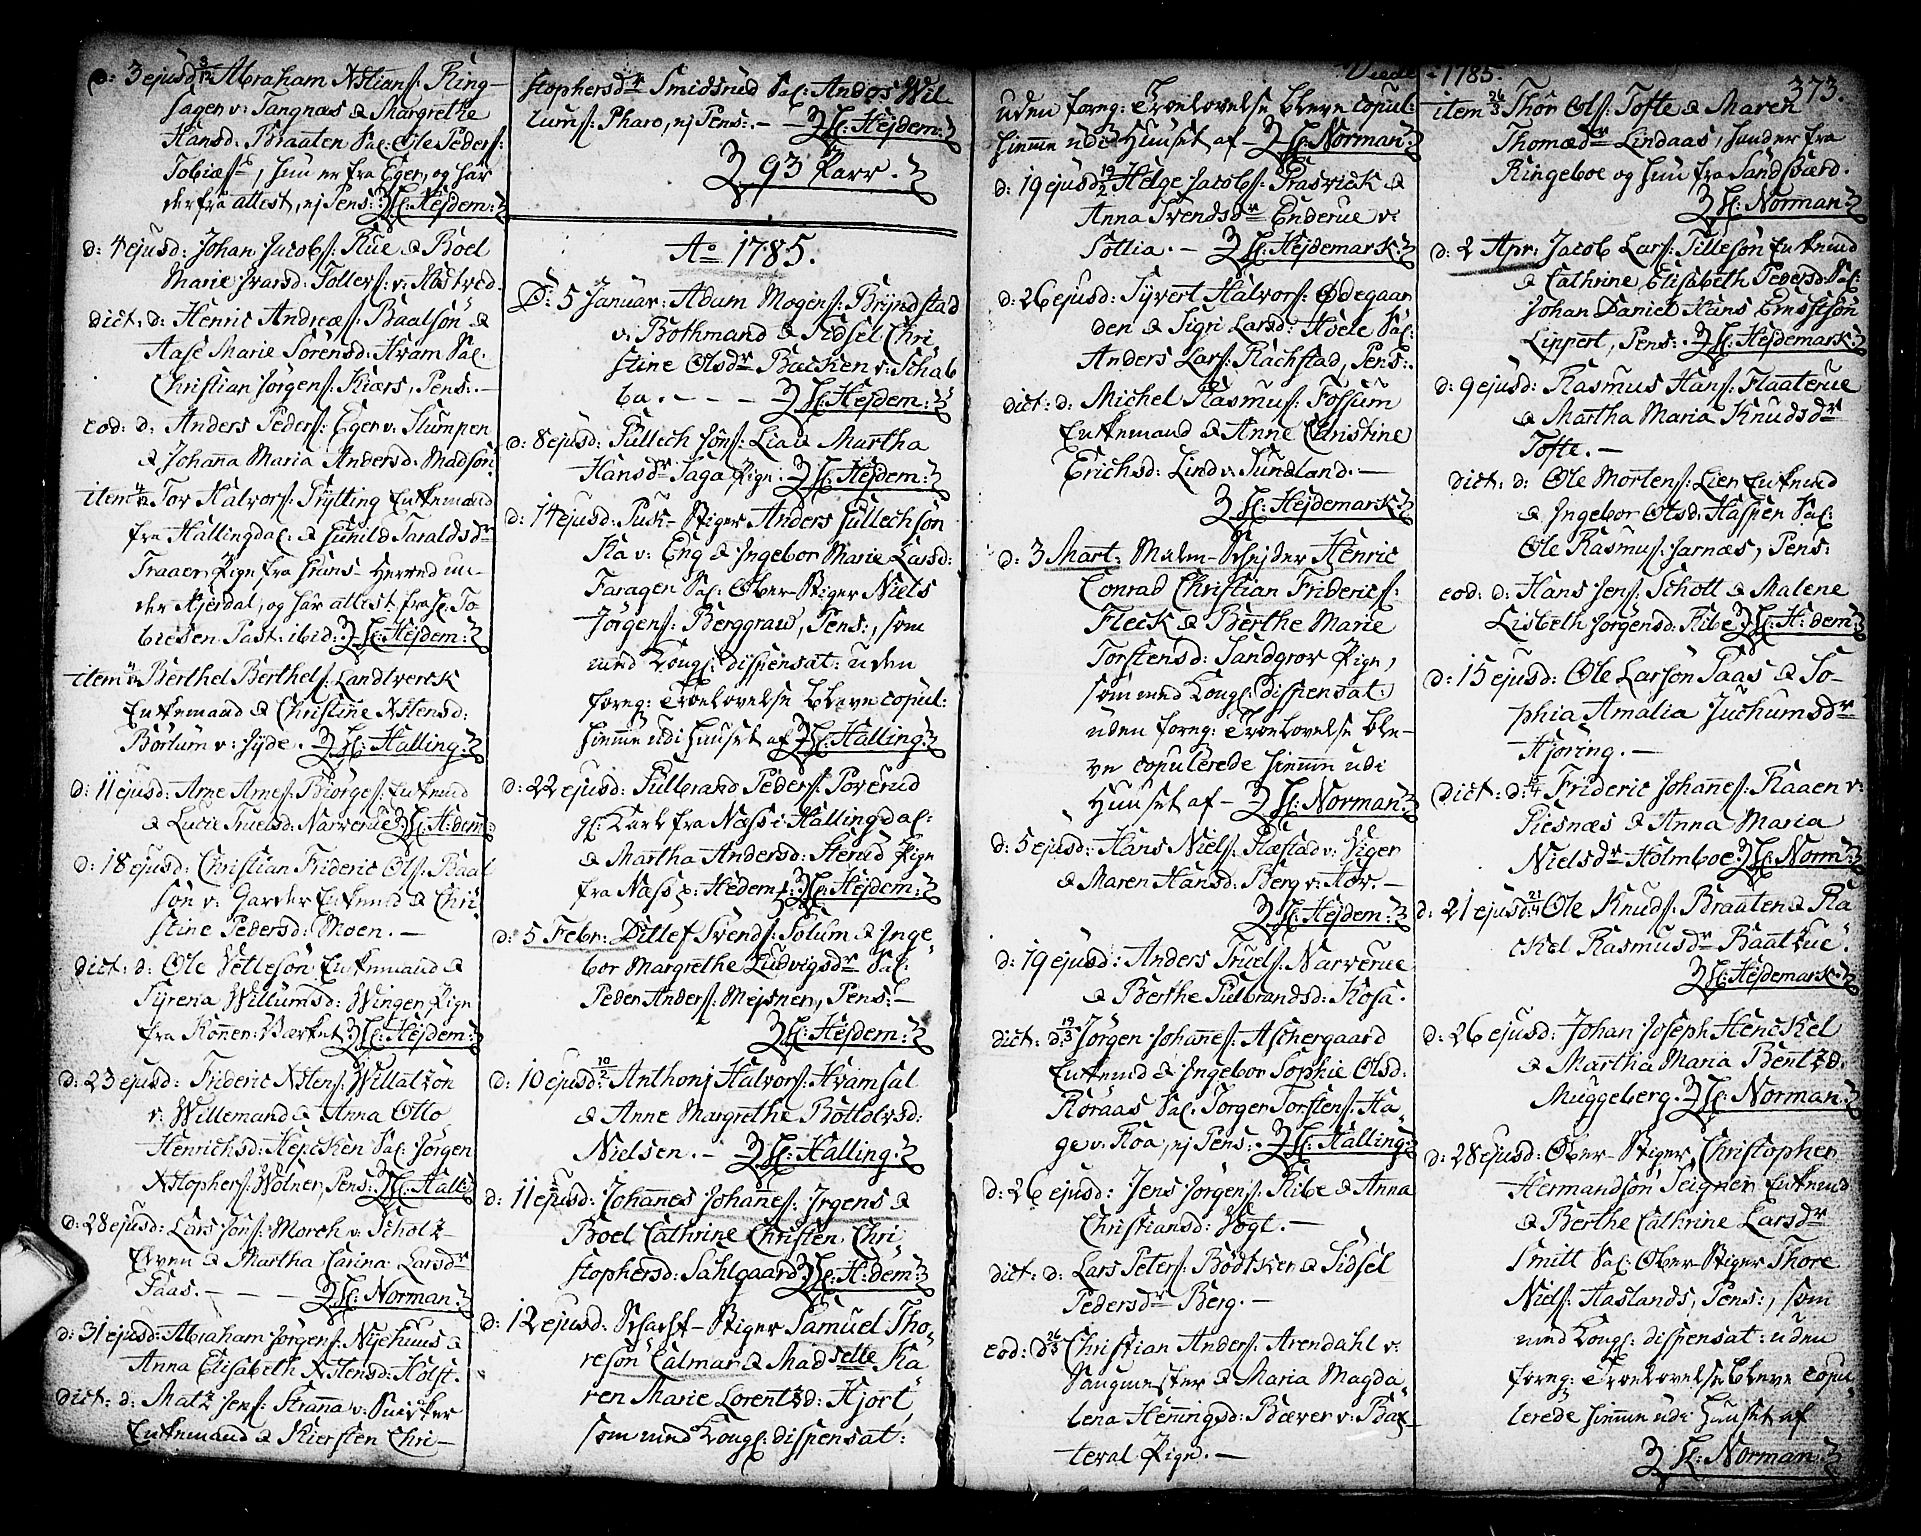 d: 3 ejusd: 3/12 Abraham Xstians: Ring-
sager v: Tangnæs & Margrethe
Hansd: Braaten Sal: Ole Peders:
Tobiæss:, hun er fra Eger, og har
derfra attest, ej Pens: H: Hejdem:
d: 4 ejusd: Johan Jacobs: Rue & Boel
Marie Ivarsd: Tollers: v:
dict: d: Henric Andreæs: Baalsön &
Aase Marie Sörensd: Hvam Sal:
Christian Jörgens: Kiærs, Pens: -
eod: d: Anders Peders: Eger v: Slumpen
& Johana Maria Andersd: Madsön
item Tov Halvors: Trytting Enkemand
fra Hallingdal: & Gunild Taraldsdr
Traaen, Pige fra Grans-Herred un-
der Kierdal, og har attest fra H: To
biesen Past: ibid: H: Hejdem:
item Berthel Berthels: Landtverck
Enkemand & Christine Xstensd:
Borlum v: Gyde. H: Halling:
d: 11 ejusd: Arne Arnes: Biörges: Enkemd
& Lucie Truelsd: Narverue H: H:dem:
d: 18 ejusd: Christian Frideric Ols: Baal
sön v: Garder Enkemd & Chri
stine Pedersd: Moen. -
dict: d: Ole Vetlesön Enkemand &
Syrena Willumsd: Wingen, Pige
fra Konner-Værket H: Hejdem:
d: 23 ejusd: Frideric Xstens: Willatzön
v: Willemand & Anna Otto
Henrichsd: Hejcken Sal: Jörgen
Xstophers: Wölner, Pens: H: Hall:
d: 28 ejusd: Lars Jons: Morch v: Scholtz-
Erven & Martha Carina Larsdr
Saas. - - - H: Norman:
d: 31 ejusd: Abraham Jörgens: Nyehuus &
Anna Elisabeth Xstensd: Holst.
dict: d: Matz Jens: Strana v: Snicker
Enkemand & Kiersten Chri-
stophersdr Smidsrud Sal: Andos Wil
lums: Pharo, ej Pens: - H: Hejdem:
93 Parr.
Ao 1785.
D: 5 Januar: Adam Mogens: Bryndstad
v: Bothmand & Sidsel Chri
stine Olsdr Backen v: Schab
ba. - - - H: Hejdem:
d: 8 ejusd: Gullich Jöns: Lia & Martha
Hansdr Saga Pige: H: Hejdem:
d: 14 ejusd: Puk-Stiger Anders Gullechsön
Ka v: Eng & Ingebor Marie Larsd:
Faragen Sal: Ober-Stiger Niels
Jörgens: Berggraw, Pens:, som
med Kongl: dispensat: uden
foreg: Troelovelse bleve copul:
hiemme udi Huuset af H: Halling:
d: 22 ejusd: Gulbrand Peders: Toverud
gl: Karl fra Næss i Hallingdal:
& Martha Andersd: Herud Pige
fra Næss p: Hedem: H: Hejdem:
d: 5 Febr: Ditlef Svends: Solum & Inge
bor Margrethe Ludvigsdr Sal:
Peder Anders: Mejsner, Pens: -
H: Hejdem:
d: 10 ejusd: 10/2 Anthonj Halvors: Hvamsal
& Anne Margrethe Bottolvsd:
Nielsen. - H: Halling:
d: 11 ejusd: Johannes Johannes: Irgens &
Boel Cathrine Christen Chri
stophersd: Sahlgaard H: H:dem:
d: 12 ejusd: Scharf-Stiger Samuel Tho
resön Calmar & Madselle Ka
ren Marie Lorentzd: Hjort
som med Kongl: dispensat:
Viede - 1785. 373.
uden foreg: Troelovelse bleve copul:
hiemme udi Huuset af H: Norman:
d: 19 ejusd: 19/2 Helge Jacobs: Præsrick &
Anna Svendsdr Enderue v:
Sollia. - H: Hejdemark:
d: 26 ejusd: Syvert Halvors: Ødegaar
den & Sigri Larsd: Hoele Sal:
Anders Lars: Rachstad, Pens: -
dict: d: Michel Rasmus: Fossum
Enkemand & Anne Christine
Erichsd: Lind v: Sundland. -
H: Hejdemark:
d: 3 Mart: Malm-Schejder Henric
Conrad Christian Friderics:
Fleck & Berthe Marie
Torstensd: Sandgrov Pige,
som med Kongl: dispensat:
uden foreg: Troelovelse ble-
ve copulerede hiemme udi
Huuset af - H: Norman:
d: 5 ejusd: Hans Niels: Ræstad v: Viger
& Maren Hansd: Berg v: Aas. -
H: Hejdem:
d: 19 ejusd: Anders Truels: Narverue
& Berthe Gulbrandsd: Kosa.
dict: d: 19/3 Jörgen Johannes: Aschergaard
Enkemd & Ingebor Sophie Olsd:
Röraas Sal: Jörgen Torstens: Ha
ge v: Floa, ej Pens: H: Halling:
d: 26 ejusd: Jens Jörgens: Ribe & Anna
Christiansd: Vogt. -
dict: d: Lars Peters: Bödtker & Sidsel
Pedersdr Berg. -
eod: d: 26/3 Christian Anders: Arendahl v:
Saugmester & Maria Magda
lena Heñingsd: Bæver v: Bax
teval Pige. -
item 26/3 Thor Ols: Tofte & Maren
Thomædr Lindaas, hand er fra
Ringeboe og hun fra Sandsværd.
H: Norman:
d: 2 Apr: Jacob Lars: Tillesön Enkemd
& Cathrine Elisabeth Pedersd Sal:
Johan Daniel Hans Ernstsön
Lippert, Pens: H: Hejdemark:
d: 9 ejusd: Rasmus Hans: Flaaterue
& Martha Maria Knudsdr
Tofte. -
dict: d: Ole Mortens: Lien Enkemd
& Ingebor Olsd: Haspen Sal:
Ole Rasmus: Jarnæs, Pens:
eod: d: Hans Jens: Schott & Malene
Lisbeth Jörgensd: Ribe H: H:dem:
d: 15 ejusd: Ole Larsön Saas & So-
phia Amalia Juchumsdr
Hjöring. -
dict: d: 15/4 Frideric Johannes: Raaen v:
Giesnæs & Anna Maria
Nielsdr Holmboe: H: Norm:
d: 21 ejusd: 21/4 Ole Knuds: Braaten & Ra
chel Rasmusdr Baantrue.
H: Hejdemark:
d: 26 ejusd: Johan Joseph Henckel
& Martha Maria Bentzd:
Muggeberg. H: Norman:
d: 28 ejusd: Ober-Stiger Christopher
Hermandsön Seigner Enkemd
& Berthe Cathrine Larsdr
Smitt Sal: Ober-Stiger Thore
Niels: Haslands, Pens:, som
med Kongl: dispensat: uden
foreg: Troelovelse bleve copu
lerede hiemme udi Huuset af
H: Norman: